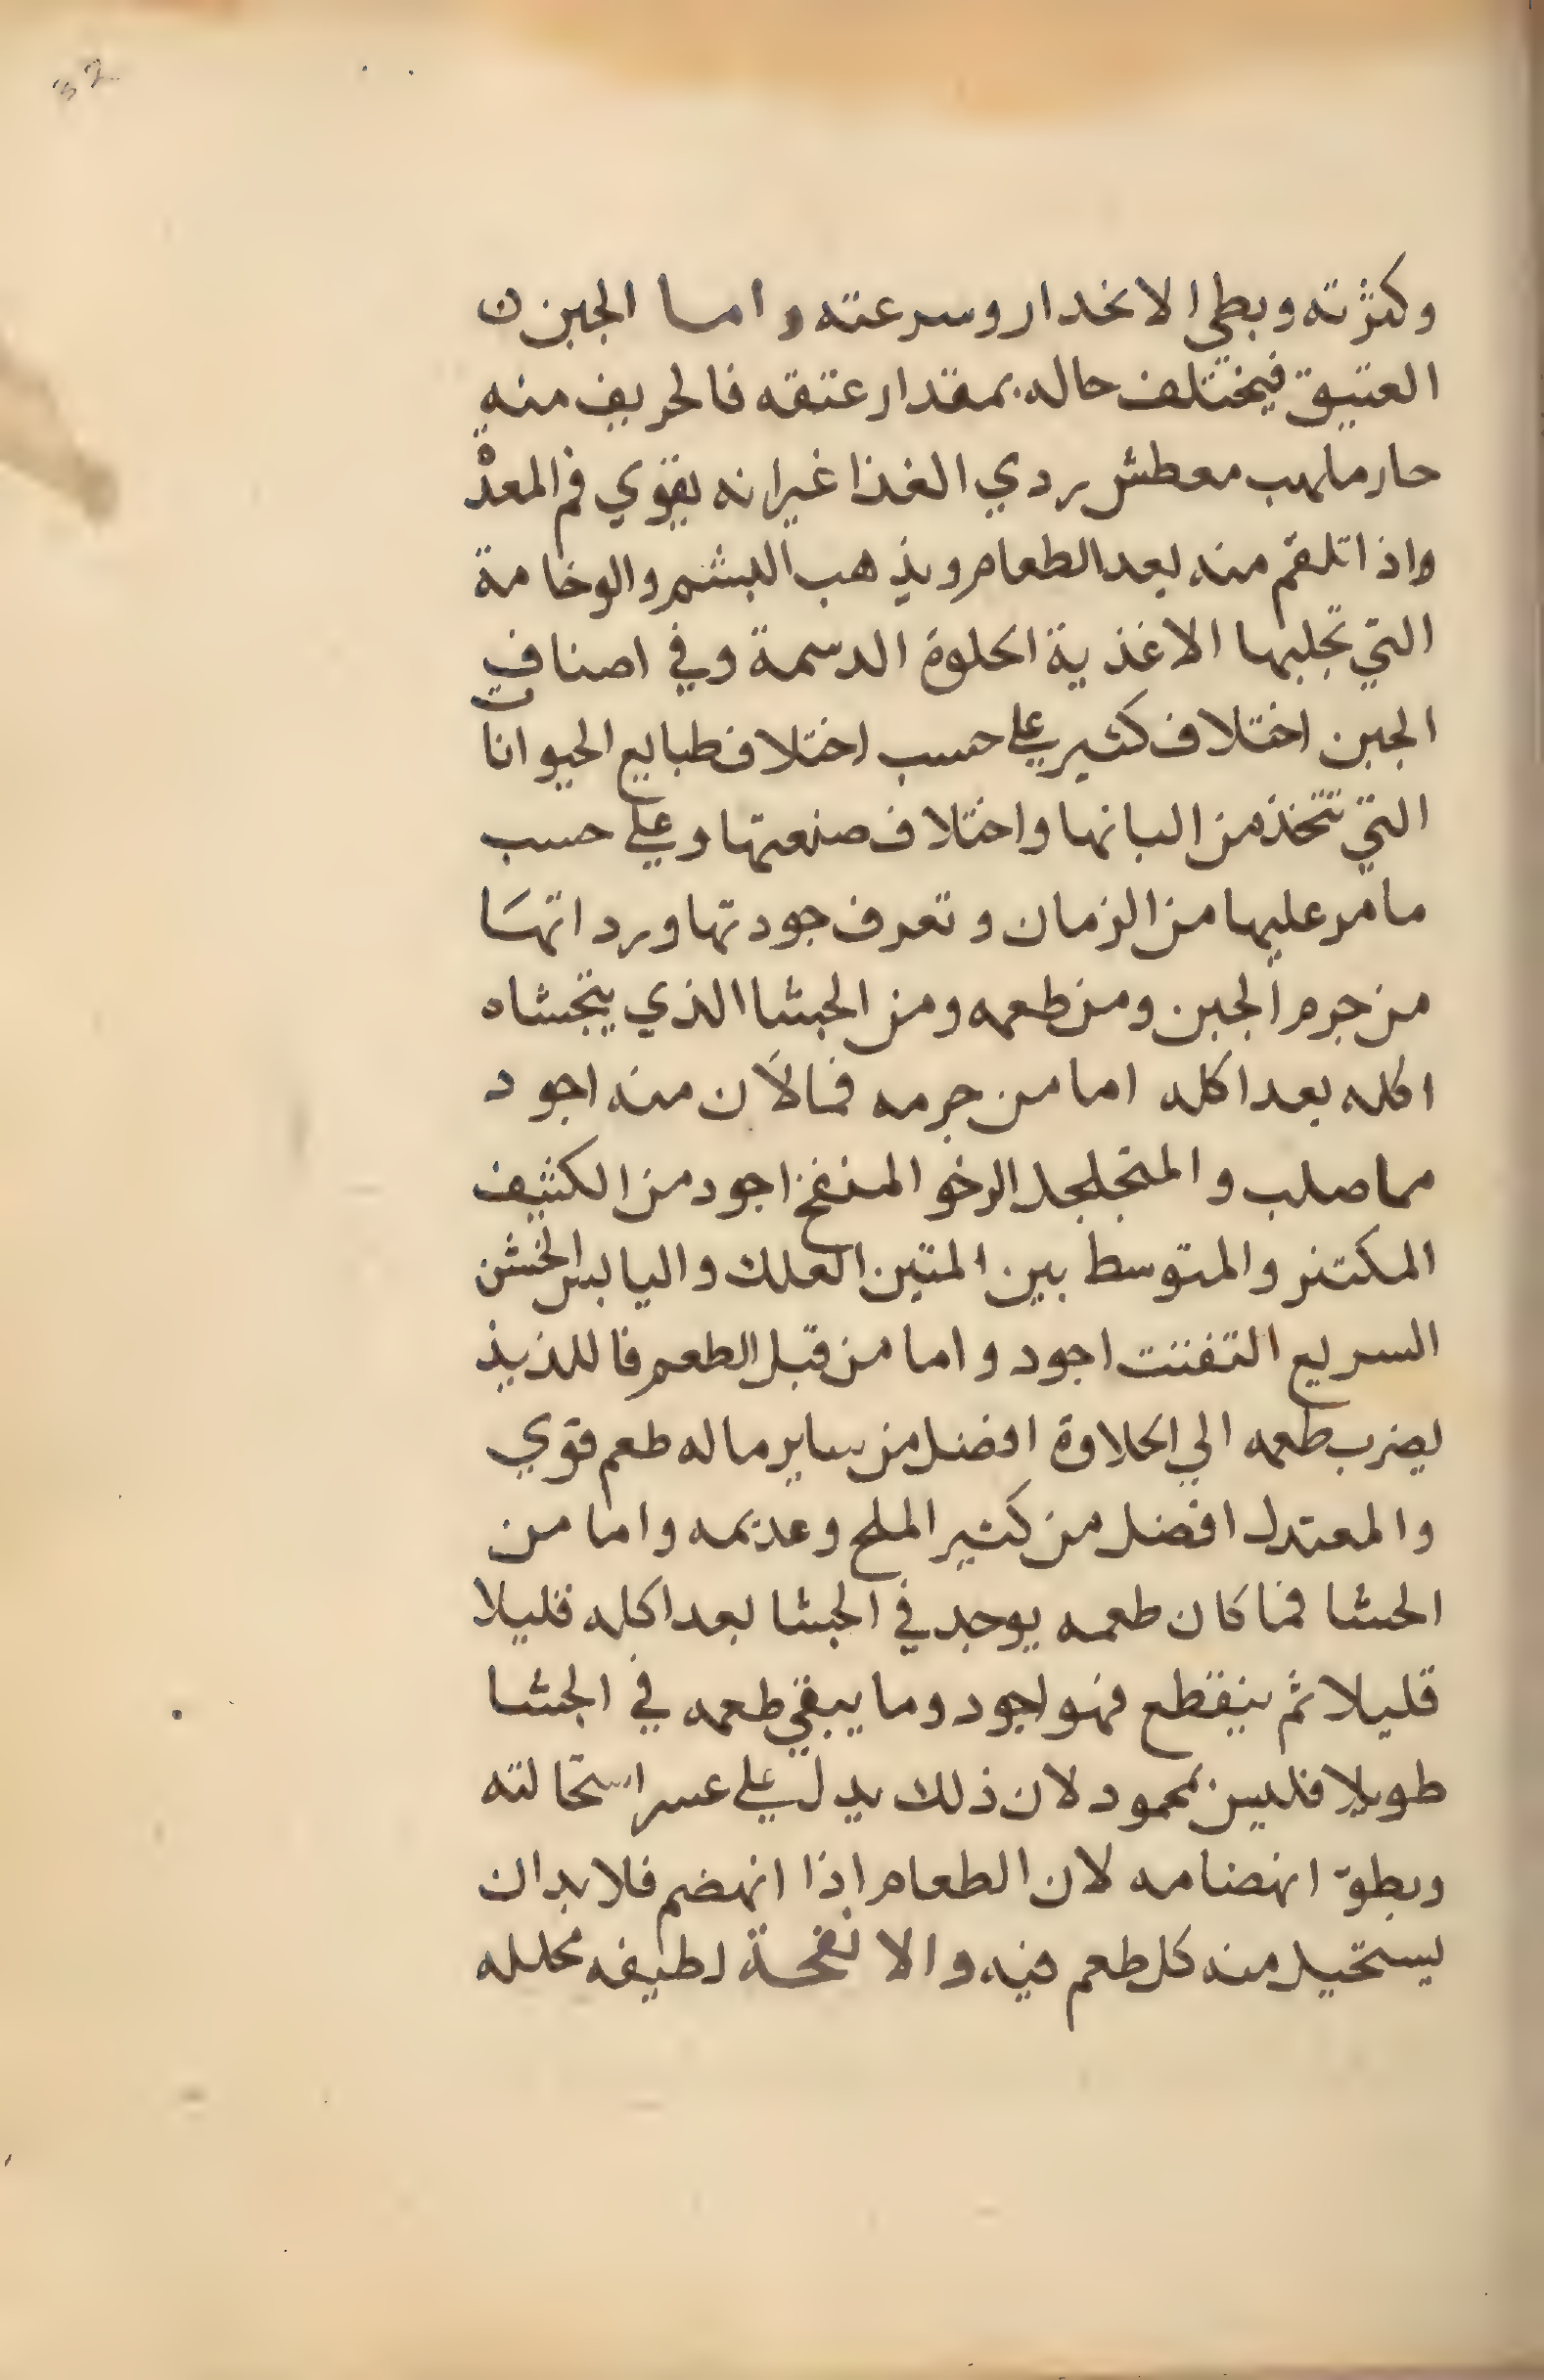 32
وكثرته وبطي الانحدار وسرعته واما الجبن
العتيق فيختلف حاله بمقدار عتقه فالحريف منه
حار ملهب معطش ردي الغذا غير انه يقوي فم المعدة
واذا تلقم منه بعد الطعام ويذهب البشم والوخامة
التي تجلبها الاغذية الحلوة الدسمة وفي اصناف
الجبن اختلاف كثير علي حسب اختلاف طبايع الحيوانات
التي تتخذ من البانها واختلاف صنعتها وعلي حسب
ما مر عليها من الزمان وتعرف جودتها ورداتها
من جرم الجبن ومن طعمه ومن الجشا الذي يتجشاه
اكله بعد اكله اما من جرمه فما لان منه اجود
مما صلب والمتجلجل الرخو المنفخ اجود من الكثيف
المكتنز والمتوسط بين المتين العلك واليابس الخشن
السريع التفتت اجود واما من قبل الطعم فاللذيذ
يضرب طعمه الي الحلاوة افضل من ساير ما له طعم قوي
والمعتدل افضل من كثير الملح وعديمه واما من
الحشا فما كان طعمه يوجد في الجشا بعد اكله قليلا
قليلا ثم ينقطع فهو اجود وما يبقي طعمه في الجشا
طويلا فليس بمحمود لان ذلك يدل علي عسر استحالته
وبطو انهضامه لان الطعام اذا انهضم فلا بد ان
يستحيل منه كل طعم فيه والانفحة لطيفه محلله